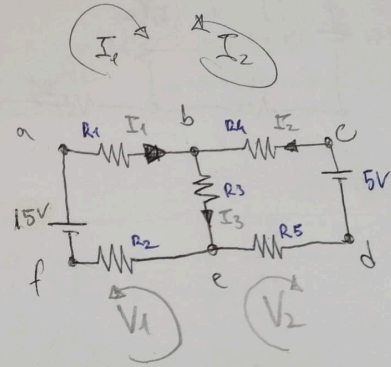 I1 I2
a R1 I1 b R4 I2 c
R3 5V
15V I3
R2 R5
f e d
V1 V2